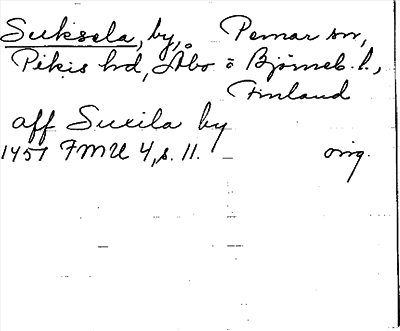 Suksela, by, Pemar sn,
Pikis hd, Åbo o Björneb. l.,
Finland
aff Suxila by
1457 FMU 4, s. 11. orig.